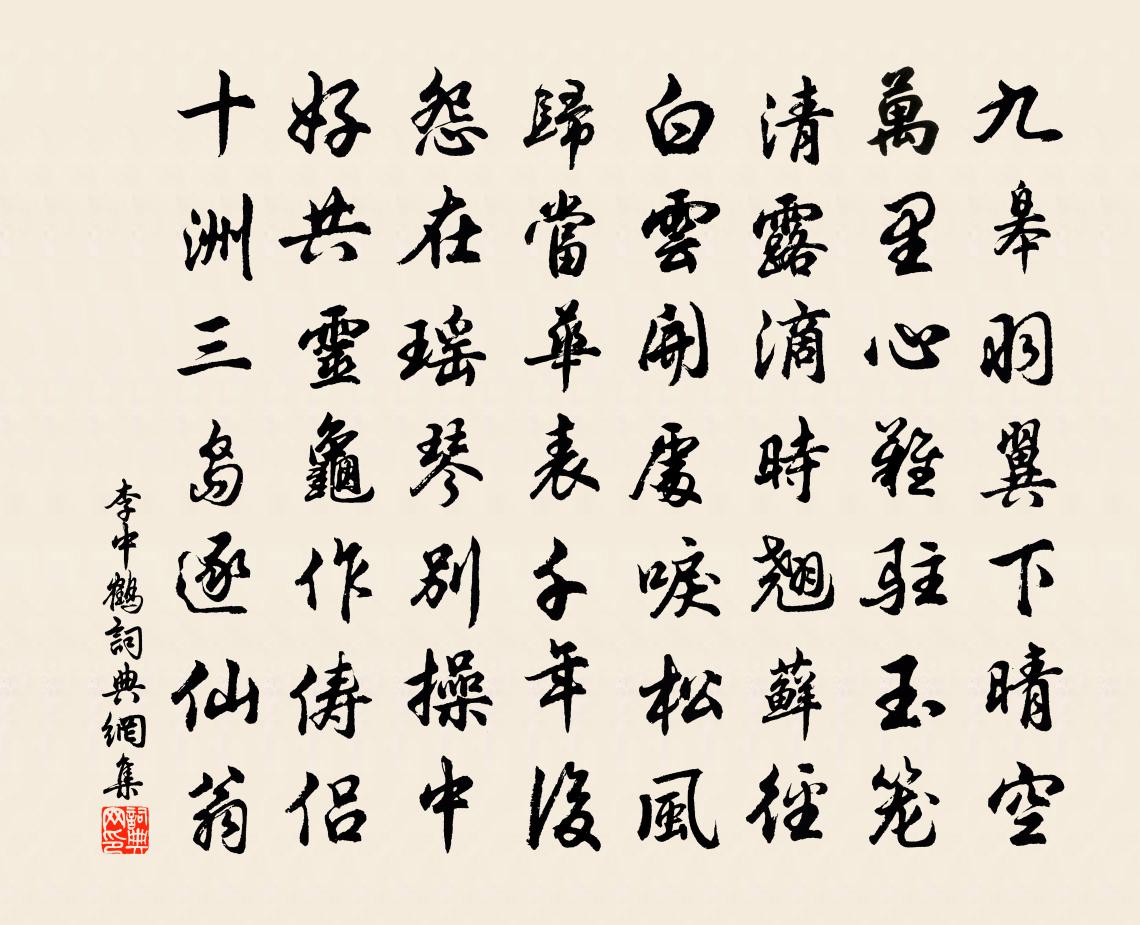 九皋羽翼下晴空
萬里心難駐玉笼
清露滴時翹蘚徑
白雲開處唳松風
歸當華表千年後
怨在瑶琴別操中
好共靈龜作俦侣
十洲三島逐仙翁
李中鶴詞典網集
詞典网印